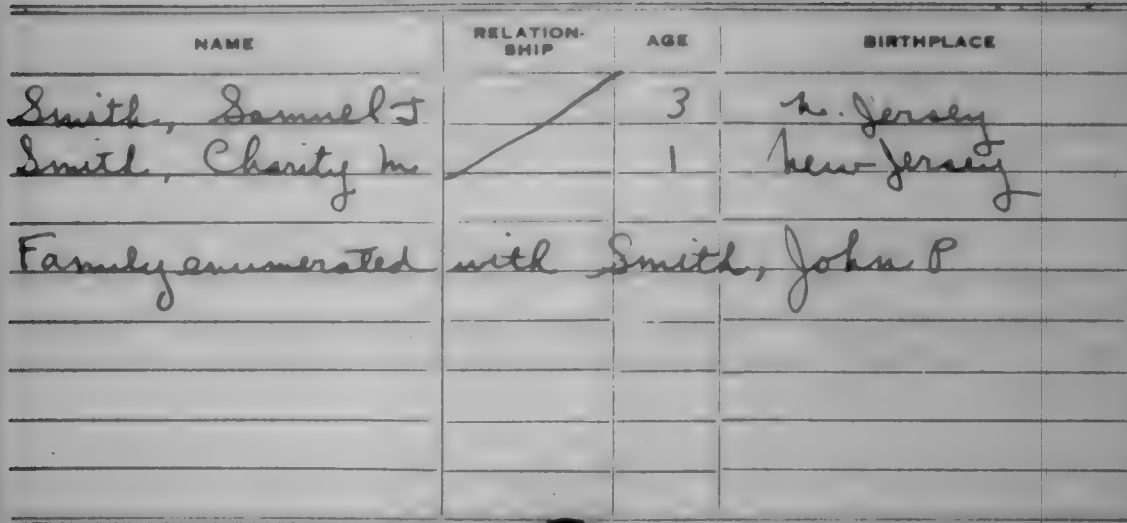 NAME RELATION-SHIP AGE BIRTHPLACE
Smith, Samuel J 3 N. Jersey
Smith, Charity M 1 New Jersey
Family enumerated with Smith, John P